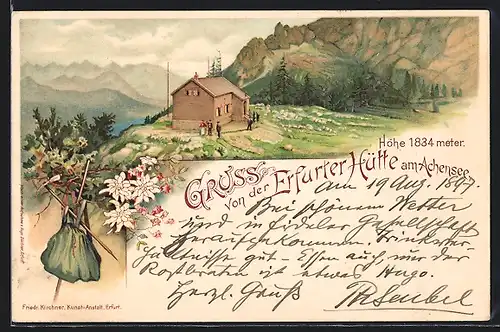 Höhe 1834 meter.
GRUSS
von der Erfurter Hütte am Achensee.
am 19 Aug. 1897.
Bei schönem Wetter
und in fideler Gesellschaft
heraufgekommen. Trinkver-
hältnisse gut – Essen auch nur der
Rostbraten ist etwas
Herzl. Gruß
Friedr. Kirchner, Kunst-Anstalt, Erfurt.